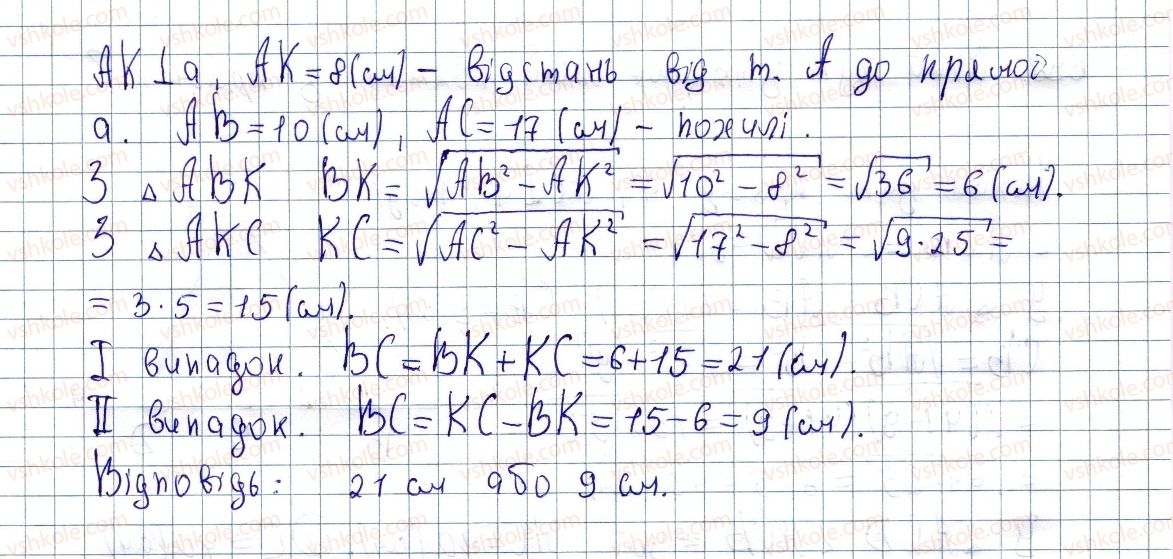 AK ⊥ a, AK = 8 (см) – відстань від т. A до прямої
a. AB = 10 (см), AC = 17 (см) – похилі.
З △ ABK BK = √(AB² – AK²) = √(10² – 8²) = √36 = 6 (см).
З △ AKC KC = √(AC² – AK²) = √(17² – 8²) = √(9·25) =
= 3·5 = 15 (см).
I випадок. BC = BK + KC = 6 + 15 = 21 (см).
II випадок. BC = KC – BK = 15 – 6 = 9 (см).
Відповідь: 21 см або 9 см.